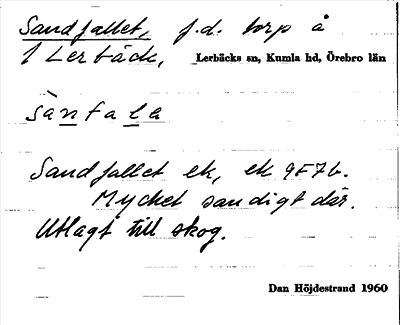 Sandfallet, f.d. torp å
1 Lerbäck, Lerbäcks sn, Kumla hd, Örebro län
sànfala
Sandfallet ek, ek 9F7b.
Mycket sandigt där.
Utlagt till skog.
Dan Höjdestrand 1960